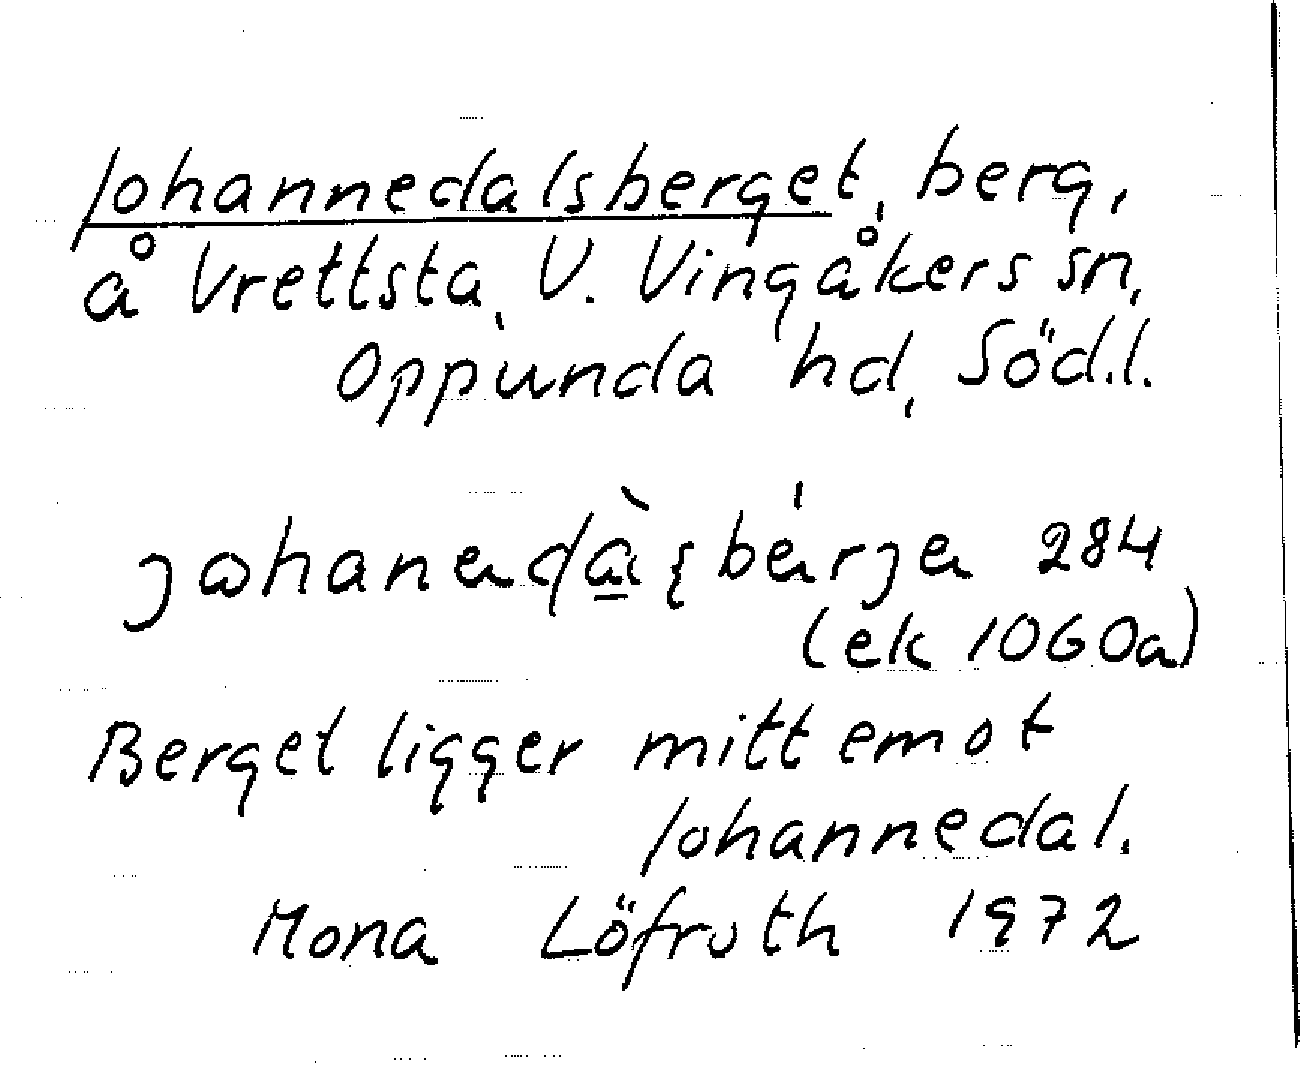 Johannedalsberget, berg,
å Vrettsta, V. Vingåkers sn,
Oppunda hd, Södl.
284
(ek 1060a)
Berget ligger mitt emot
Johannedal.
Mona Löfroth 1972